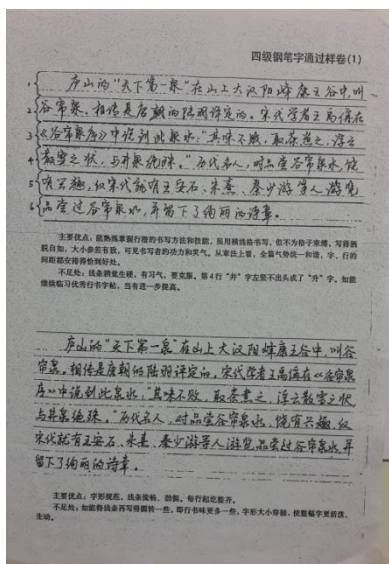 四级钢笔字通过样卷(1)
庐山的“天下第一泉”在山上大汉阳峰康王谷中,叫
谷帘泉。相传是唐朝的陆羽评定的。宋代学者王禹偁在
《谷帘泉序》中说到此泉水:“其味不败,取茶煮之,浮云
散雪之状,与井泉绝殊。”历代名人,对品尝谷帘泉水,饶
有兴趣,仅宋代就有王安石、朱熹、秦少游等人游览
品尝过谷帘泉水,并留下了绚丽的诗章。
1
2
3
4
5
6
主要优点:能熟练掌握行楷的书写方法和技能,虽用横线格书写,但不为格子束缚,写得洒
脱自如,大小参差有致,可见书写者的功力和灵气。从章法上看,全篇气势统一和谐,字、行的
间距都安排得恰到好处。
不足处:线条稍觉生硬,有习气,要克服。第4行“井”字左竖不出头成了“升”字。如能
继续临习优秀行书字帖,当有进一步提高。
庐山的“天下第一泉”在山上大汉阳峰康王谷中,叫谷
帘泉。相传是唐朝的陆羽评定的。宋代学者王禹偁在《谷帘泉
序》中说到此泉水:“其味不败,取茶煮之,浮云散雪之状
与井泉绝殊。”历代名人,对品尝谷帘泉水,饶有兴趣,仅
宋代就有王安石、朱熹、秦少游等人游览品尝过谷帘泉水,并
留下了绚丽的诗章。
主要优点:字形规范,线条流畅、劲健。每行起讫整齐。
不足处:如能得线条再写得圆转一些,即行书味更多一些,字形大小穿插,使整幅字更活泼、
生动。